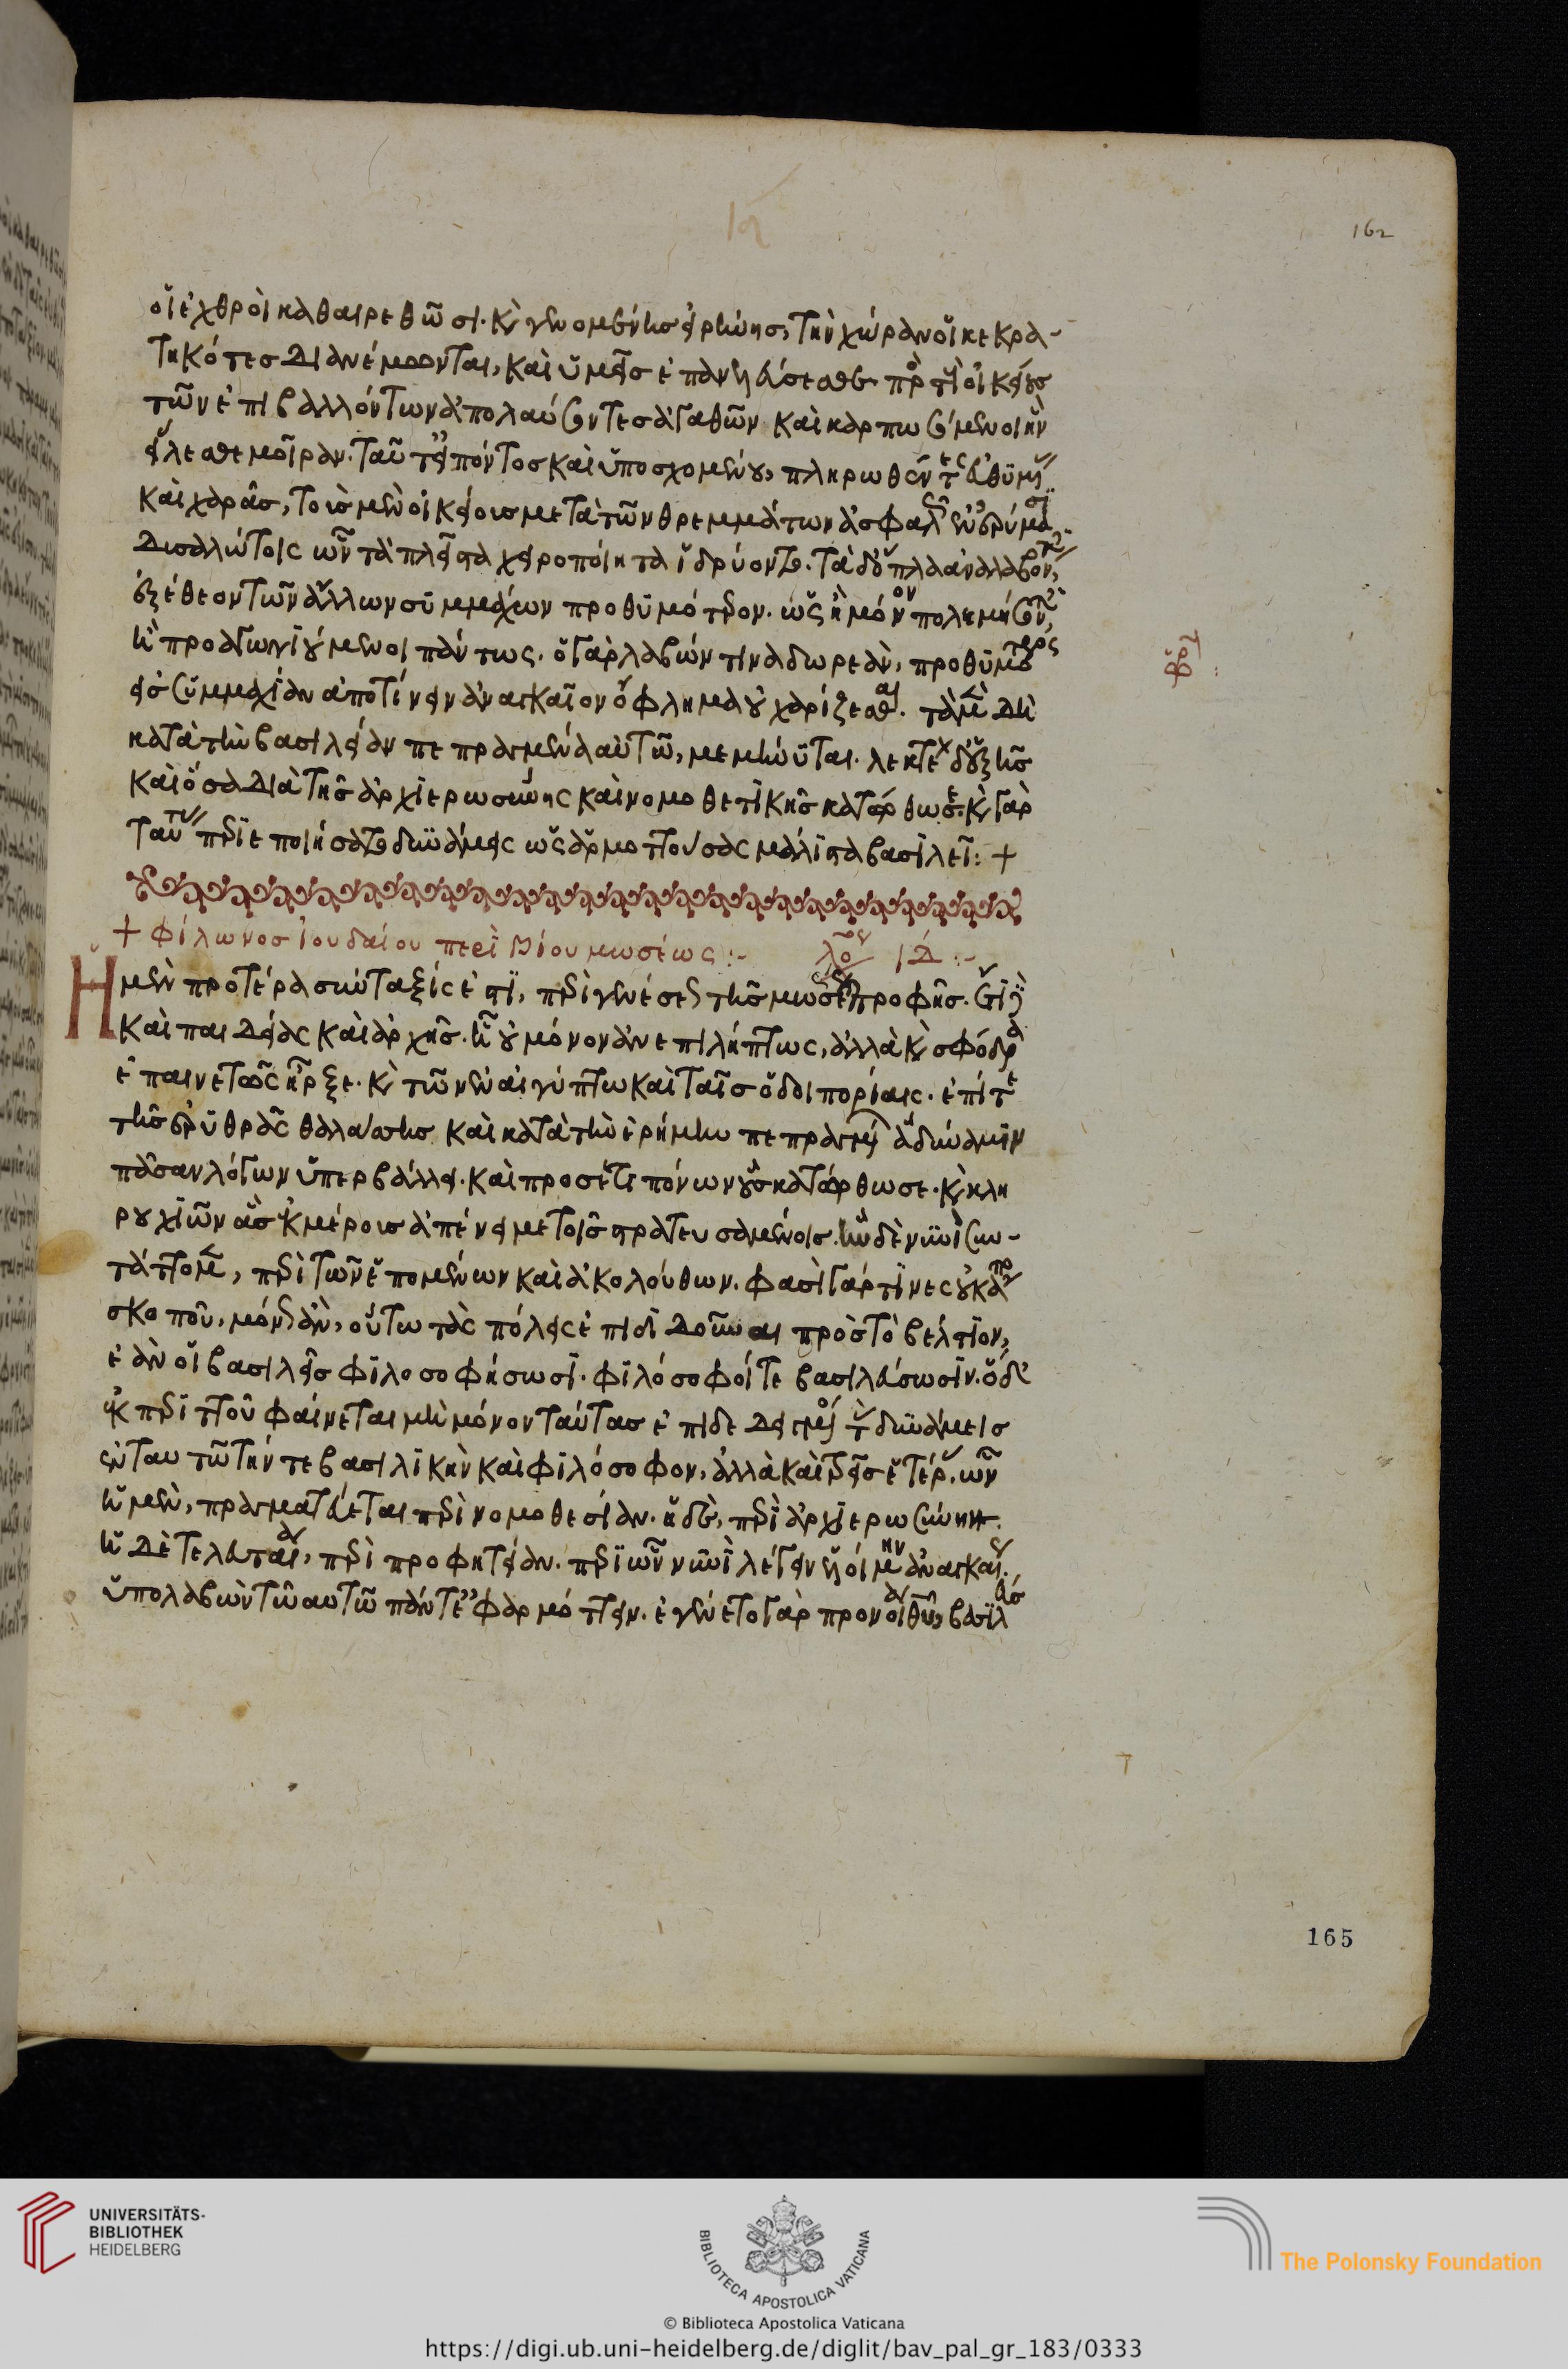 οἱ ἐχθροὶ καθαιρεθῶσι. καὶ γενομένης εἰρήνης, τὴν χώραν οἱ κεκρα-
τηκότες διανέμωνται, καὶ ὑμεῖς ἐπανελεύσεσθε πρὸς τοὺς οἰκείους
τῶν ἐπιβαλλόντων ἀπολαύσοντες ἀγαθῶν καὶ καρπωσόμενοι ἣν
εἵλεσθε μοῖραν. ταῦτ' εἰπόντος καὶ ὑποσχομένου, πληρωθέντες εὐθυμίας
καὶ χαρᾶς, τοὺς μὲν οἰκείους μετὰ τῶν θρεμμάτων ἀσφαλῶς ἐν ἐρύμασι
δυσαλώτοις ὧν τὰ πλεῖστα χειροποίητα ἱδρύονται. τὰ δ' ὅπλα ἀναλαβόντες,
ἐξέθεον τῶν ἄλλων συμμάχων προθυμότερον. ὡς ἢ μόνον πολεμήσοντες,
ἢ προαγωνιούμενοι πάντως. ὁ γὰρ λαβών τινα δωρεὰν, προθυμότερος
εἰς συμμαχίαν ἀποτίνειν ἀναγκαῖον ὄφλημα οὐ χαρίζεσθαι. τὰ μὲν δὴ
κατὰ τὴν βασιλείαν πεπραγμένα αὐτῶ, μεμήνυται. λεκτέον δ' ἑξῆς
καὶ ὅσα διὰ τῆς ἀρχιερωσύνης καὶ νομοθετικῆς κατώρθωσε. καὶ γὰρ
ταύτας περιεποιήσατο δυνάμεις ὡς ἁρμοττούσας μάλιστα βασιλεῖ: +
+ φίλωνος ἰουδαίου περὶ βίου μωσέως :- λόγος ιδ :-
Ἡ μὲν προτέρα σύνταξίς ἐστι, περὶ γενέσεως τῆς μωσέως προφῆς. ἔτι
καὶ παιδείας καὶ ἀρχῆς. ἣν οὐ μόνον ἀνεπιλήπτως, ἀλλὰ καὶ σφόδρα
ἐπαινετῶς ἦρξε. καὶ τῶν ἐν αἰγύπτω καὶ ταῖς ὁδοιπορίαις. ἐπί τε
τῆς ἐρυθρᾶς θαλάσσης καὶ κατὰ τὴν ἐρήμην πεπραγμένων ἃ δύναμιν
πᾶσαν λόγων ὑπερβάλλει. καὶ προσέτι πόνων οὓς κατώρθωσε. καὶ κλη
ρουχιῶν ἃς ἐκ μέρους ἀπένειμε τοῖς στρατευσαμένοις. ἣν δὲ νυνὶ συν-
τάττομεν, περὶ τῶν ἑπομένων καὶ ἀκολούθων. φασὶ γάρ τινες οὐκ ἀπὸ
σκοποῦ, μόνως ἂν, οὕτω τὰς πόλεις ἐπιδιδόναι πρὸς τὸ βέλτιον,
ἐὰν οἱ βασιλεῖς φιλοσοφήσωσι. φιλόσοφοί τε βασιλεύσωσιν. ὁ δ'
ἐκ περιττοῦ φαίνεται μὴ μόνον ταύτας ἐπιδεδειγμένος τὰς δυνάμεις
ἐν ταυτῶ τήν τε βασιλικὴν καὶ φιλόσοφον, ἀλλὰ καὶ τρεῖς ἑτέρας. ὧν
ἡ μὲν, πραγματεύεται περὶ νομοθεσίαν. ἡ δὲ, περὶ ἀρχιερωσύνην.
ἡ δὲ τελευταία, περὶ προφητείαν. περὶ ὧν νυνὶ λέγειν εἱλόμην ἀναγκαίως
ὑπολαβὼν τῶ αυτῶ πάντ' ἐφαρμόττειν. ἐγένετο γὰρ προνοία θεοῦ, βασιλεύς
162
165
UNIVERSITÄTS-
BIBLIOTHEK
HEIDELBERG
BIBLIOTECA APOSTOLICA VATICANA
The Polonsky Foundation
© Biblioteca Apostolica Vaticana
https://digi.ub.uni-heidelberg.de/diglit/bav_pal_gr_183/0333